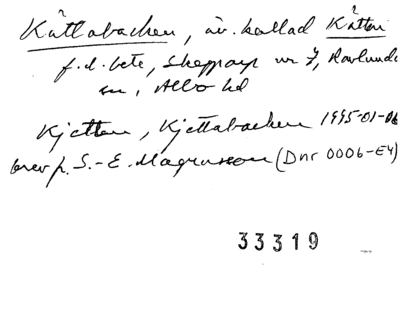 Kåttabacken, äv. kallad Kåtten
f.d. bete, Skepparp nr 7, Ravlunda
sn, Albo hd
Kjetten, Kjettabacken 1995-01-06
brev fr. S.-E. Magnusson (Dnr 0006-E4)
33319